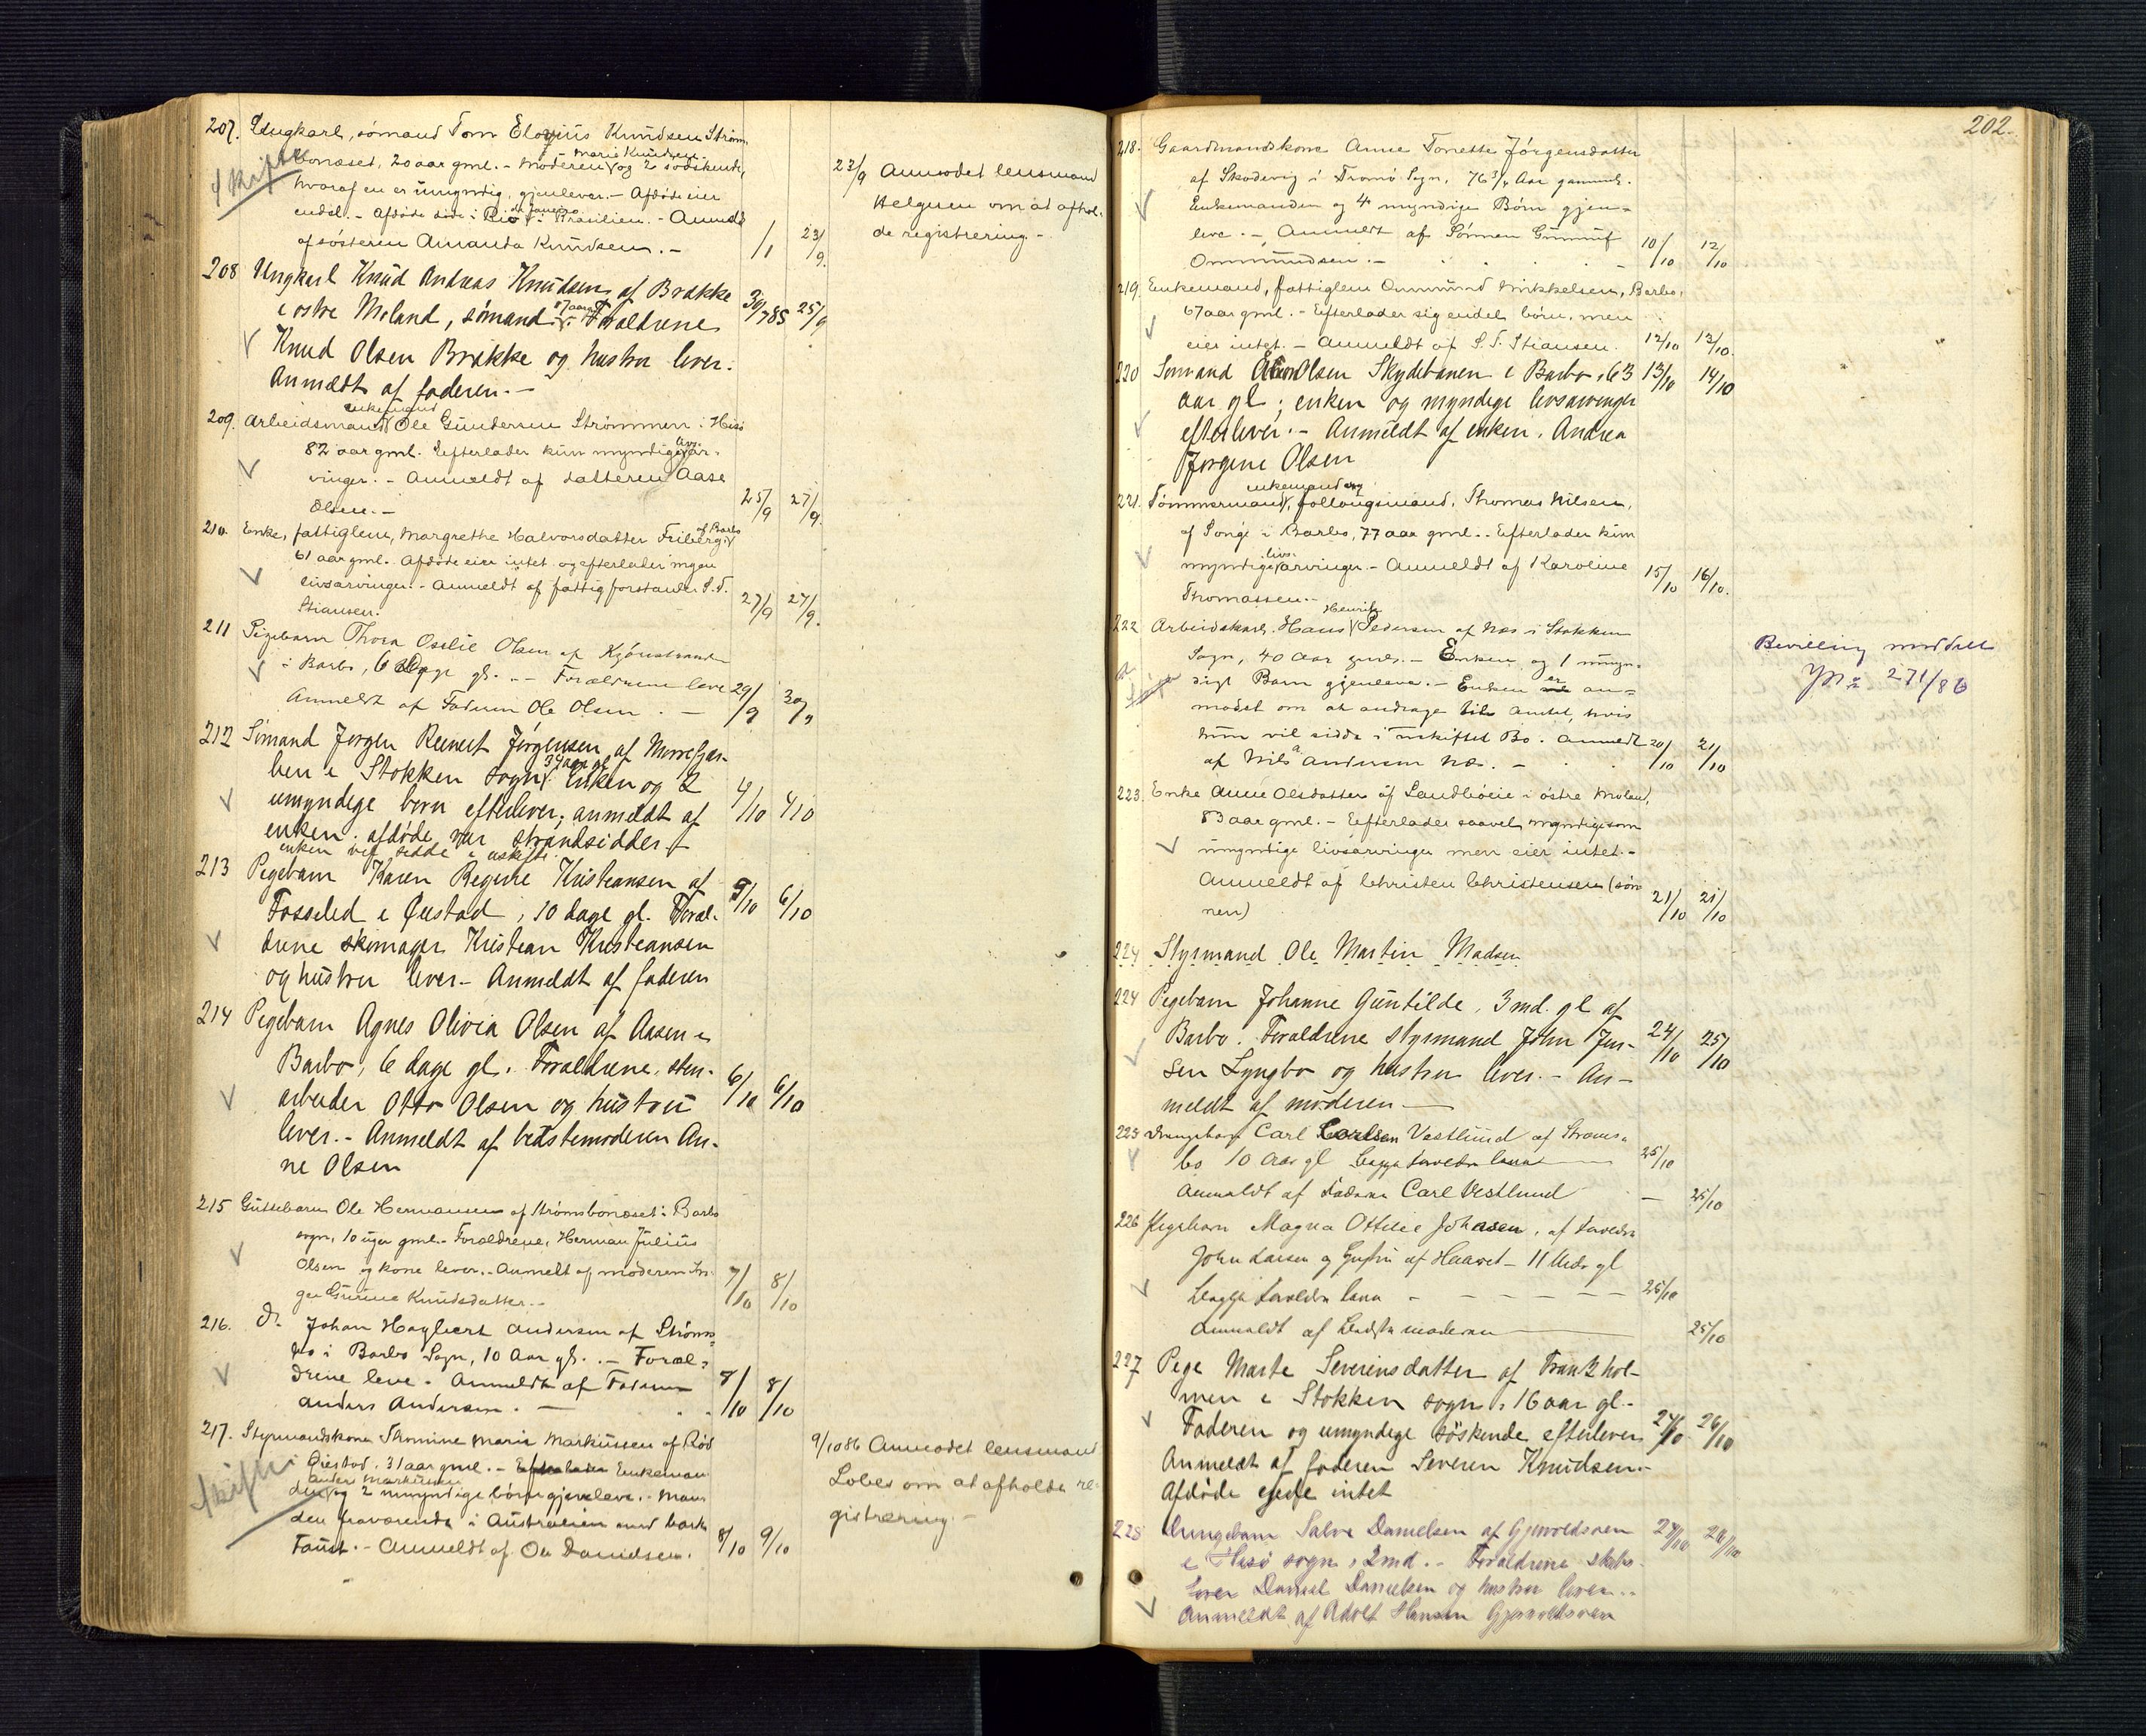 207. Ungkarl, sømand Tom Eloyius Knudsen Strøm
bonæset, 20 aar gml. - Moderen Marie Knudsen og 2 sødskende,
Skifte
hvoraf en er umyndig, gjenlever. - Afdøde eier
endel. - Afdøde døde i Rio de Janeiro i Brasilien. - Anmeldt
af søsteren Amanda Knudsen. - 1/1 23/9.
23/9 Anmodet lensmand
Helgum om at afhol-
de registrering. -
208 Ungkarl Knud Andreas Knudsen af Brække
i østre Moland, sømand 17 aar. Forældrene 30/7 85 25/9
Knud Olsen Brække og hustru lever.
Anmeldt af faderen. -
209. Arbeidsmand enkemand Ole Gundersen Strømmen i Hisø
82 aar gml. Efterlader kun myndige livsar-
vinger. - Anmeldt af datteren Aase
Olsen. - 25/9 27/9.
210. Enke, fattiglem, Margrethe Halvorsdatter Friberg af Barbo
61 aar gml. Afdøde eier intet og efterlader ingen
livsarvinger. - Anmeldt af fattigforstander S. T.
Stiansen. 27/9 27/9.
211 Pigebarn Thora Oselie Olsen af Kjønstranden
i Barbo, 6 Dage gl. - Forældrene leve 29/9 30/9
Anmeldt af Faderen Ole Olsen. -
212 Sømand Jørgen Reinert Jørgensen af Morefjær-
ven i Stokken sogn 34 aar gl. Enken og 2
umyndige børn efterlever; anmeldt af 4/10 4/10
enken. afdøde var strandsidder
enken vil sidde i uskifte.
213 Pegebarn Karen Regine Kristiansen af
Fosselied i Øiestad, 10 dage gl. Foræl- 5/10 6/10
drene skomager Kristian Kristiansen
og hustru lever. - Anmeldt af faderen
214 Pegebarn Agnes Olivia Olsen af Aasen i
Barbo, 6 dage gl. Forældrene, sten-
arbeider Otto Olsen og hustru 6/10 6/10
lever. - Anmeldt af bedstemoderen An-
ne Olsen
215 Guttebarn Ole Hermansen af Strømsbonæset i Barbo
sogn, 10 uger gml. - Forældrene, Herman Julius
Olsen og kone lever. - Anmeldt af moderen In-
ger Gurine Knudsdatter. - 7/10 8/10
216. Do Johan Hagbert Andersen af Strøms-
bo i Barbo Sogn, 10 Aar gl. - Foræl-
drene leve - Anmeldt af Faderen
Anders Andersen. - 8/10 8/10
217. Styrmandskone Thomine Marie Markussen af Rød
Øiestad, 31 aar gml. - Efterlader Enkeman
Skifte
den Anders Markussen og 2 umyndige børn gjenleve. - Man-
den fraværende i Australien med bark
Faust. - Anmeldt af Ole Danielsen. 8/10 9/10
9/10 86 Anmodet lensmand
Lober om at afholde re-
gistrering. -
202.
218. Gaardmandskone Anne Tonette Jørgensdatter
af Skodevig i Tromø Sogn, 76 3/4 Aar gammel.
Enkemanden og 4 myndige Børn gjen-
leve. - Anmeldt af Sønnen Gunnuf
Ommundsen. - 10/10 12/10
219. Enkemand, fattiglem Ommund Mikkelsen, Barbo,
67 aar gml. - Efterlader sig endel børn, men
eier intet. - Anmeldt af S. T. Stiansen. 12/10 12/10.
220 Sømand Olsen Skydebanen i Barbo, 63 13/10 14/10
aar gl; enken og myndige livsarvinger
efterlever. - Anmeldt af enken, Andrea
Jørgine Olsen
221. Tømmermand, enkemand og føllaugsmand, Thomas Nilsen,
af Songe i Barbo, 77 aar gml. - Efterlader kun
myndige livsarvinger - Anmeldt af Karoline
Thomassen. - 15/10 16/10.
222 Arbeidskarl Hans Henrik Pedersen af Næs i Stokken
Sogn, 40 Aar gml. - Enken og 1 umyn-
digt Barn gjenleve. - Enken er an-
modet om at andrage til Amtet, hvis
hun vil sidde i uskiftet Bo. Anmeldt 20/10 21/10
af Nils Andersen Næs. -
Bevilling meddelt
271/86
223. Enke Anne Olsdatter af Sandbøeie i østre Moland,
83 aar gml. - Efterlader saavel myndige som
umyndige livsarvinger men eier intet. -
Anmeldt af Christen Christensen (søn-
nen) 21/10 21/10
224 Styrmand Ole Martin Madsen
224 Pegebarn Johanne Guntilde, 3 md. gl af
Barbo. Forældrene styrmand John Jen- 24/10 25/10
sen Lyngbo og hustru lever. - An-
meldt af moderen -
225 Drengebarn Carl Carlsen Vestlund af Strøms-
bo 10 Aar gl Begge Forældre leva 25/10
Anmeldt af Faderen Carl Vestlund - 25/10
226 Pigebarn Magna Ottilie Johnsen, af Forældre
John Larsen og Hustru af Haavet - 11 Mdr gl
Begge Forældre leva - - - - - 25/10
Anmeldt af Bedstemoderen 25/10
227 Pege Marte Severinsdatter af Frantzhol-
men i Stokken sogn, 16 aar gl. -
Faderen og umyndige søskende efterlever 24/10 26/10
Anmeldt af faderen Severin Knudsen. -
Afdøde eiede intet
228 Drengebarn Salve Danielsen af Gjervoldsøen 24/10 26/10
i Hisø sogn, 2 md. - Forældrene skibs-
fører Daniel Danielsen og hustru lever. -
Anmeldt af Adolf Hansen Gjervoldsøen